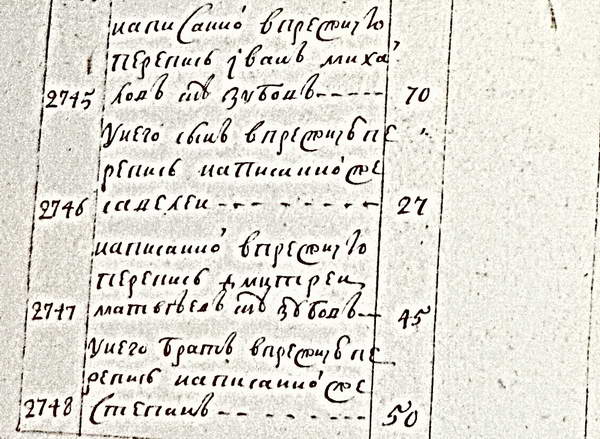 написанной в прежнюю
перепись иванъ миха
2745 ловъ снъ зубовъ ----- 70
У него сынъ в прежнюю пе
репись написанной же
2746 савелеи -- - - - - - 27
написанной в прежнюю
перепись дмитреи
2747 матвеевъ снъ зубовъ -- 45
У него братъ в прежнюю пе
репись написанной же
2748 степанъ -- - - - - - 50